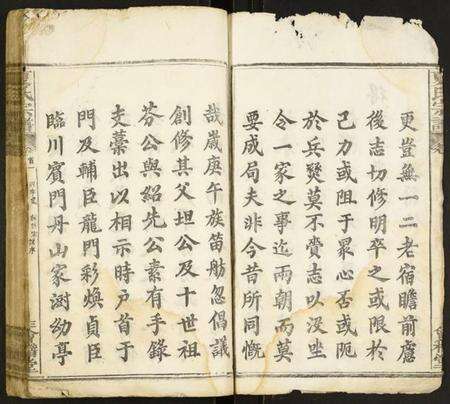 更豈無一二老宿瞻前慮
後志切修明卒之或限於
己力或阻于眾心否或阨
於兵燹莫不賫志以沒坐
令一家之事迄兩朝而莫
要成局夫非今昔所同慨
哉歲庚午族笛舫忽倡議
創修其父坦公及十世祖
芬公與紹先公素有手錄
支藁出以相示時戶首于
門及輔臣龍門彩煥貞臣
臨川賓門丹山家澍幼亭
氏宗譜
三
堂